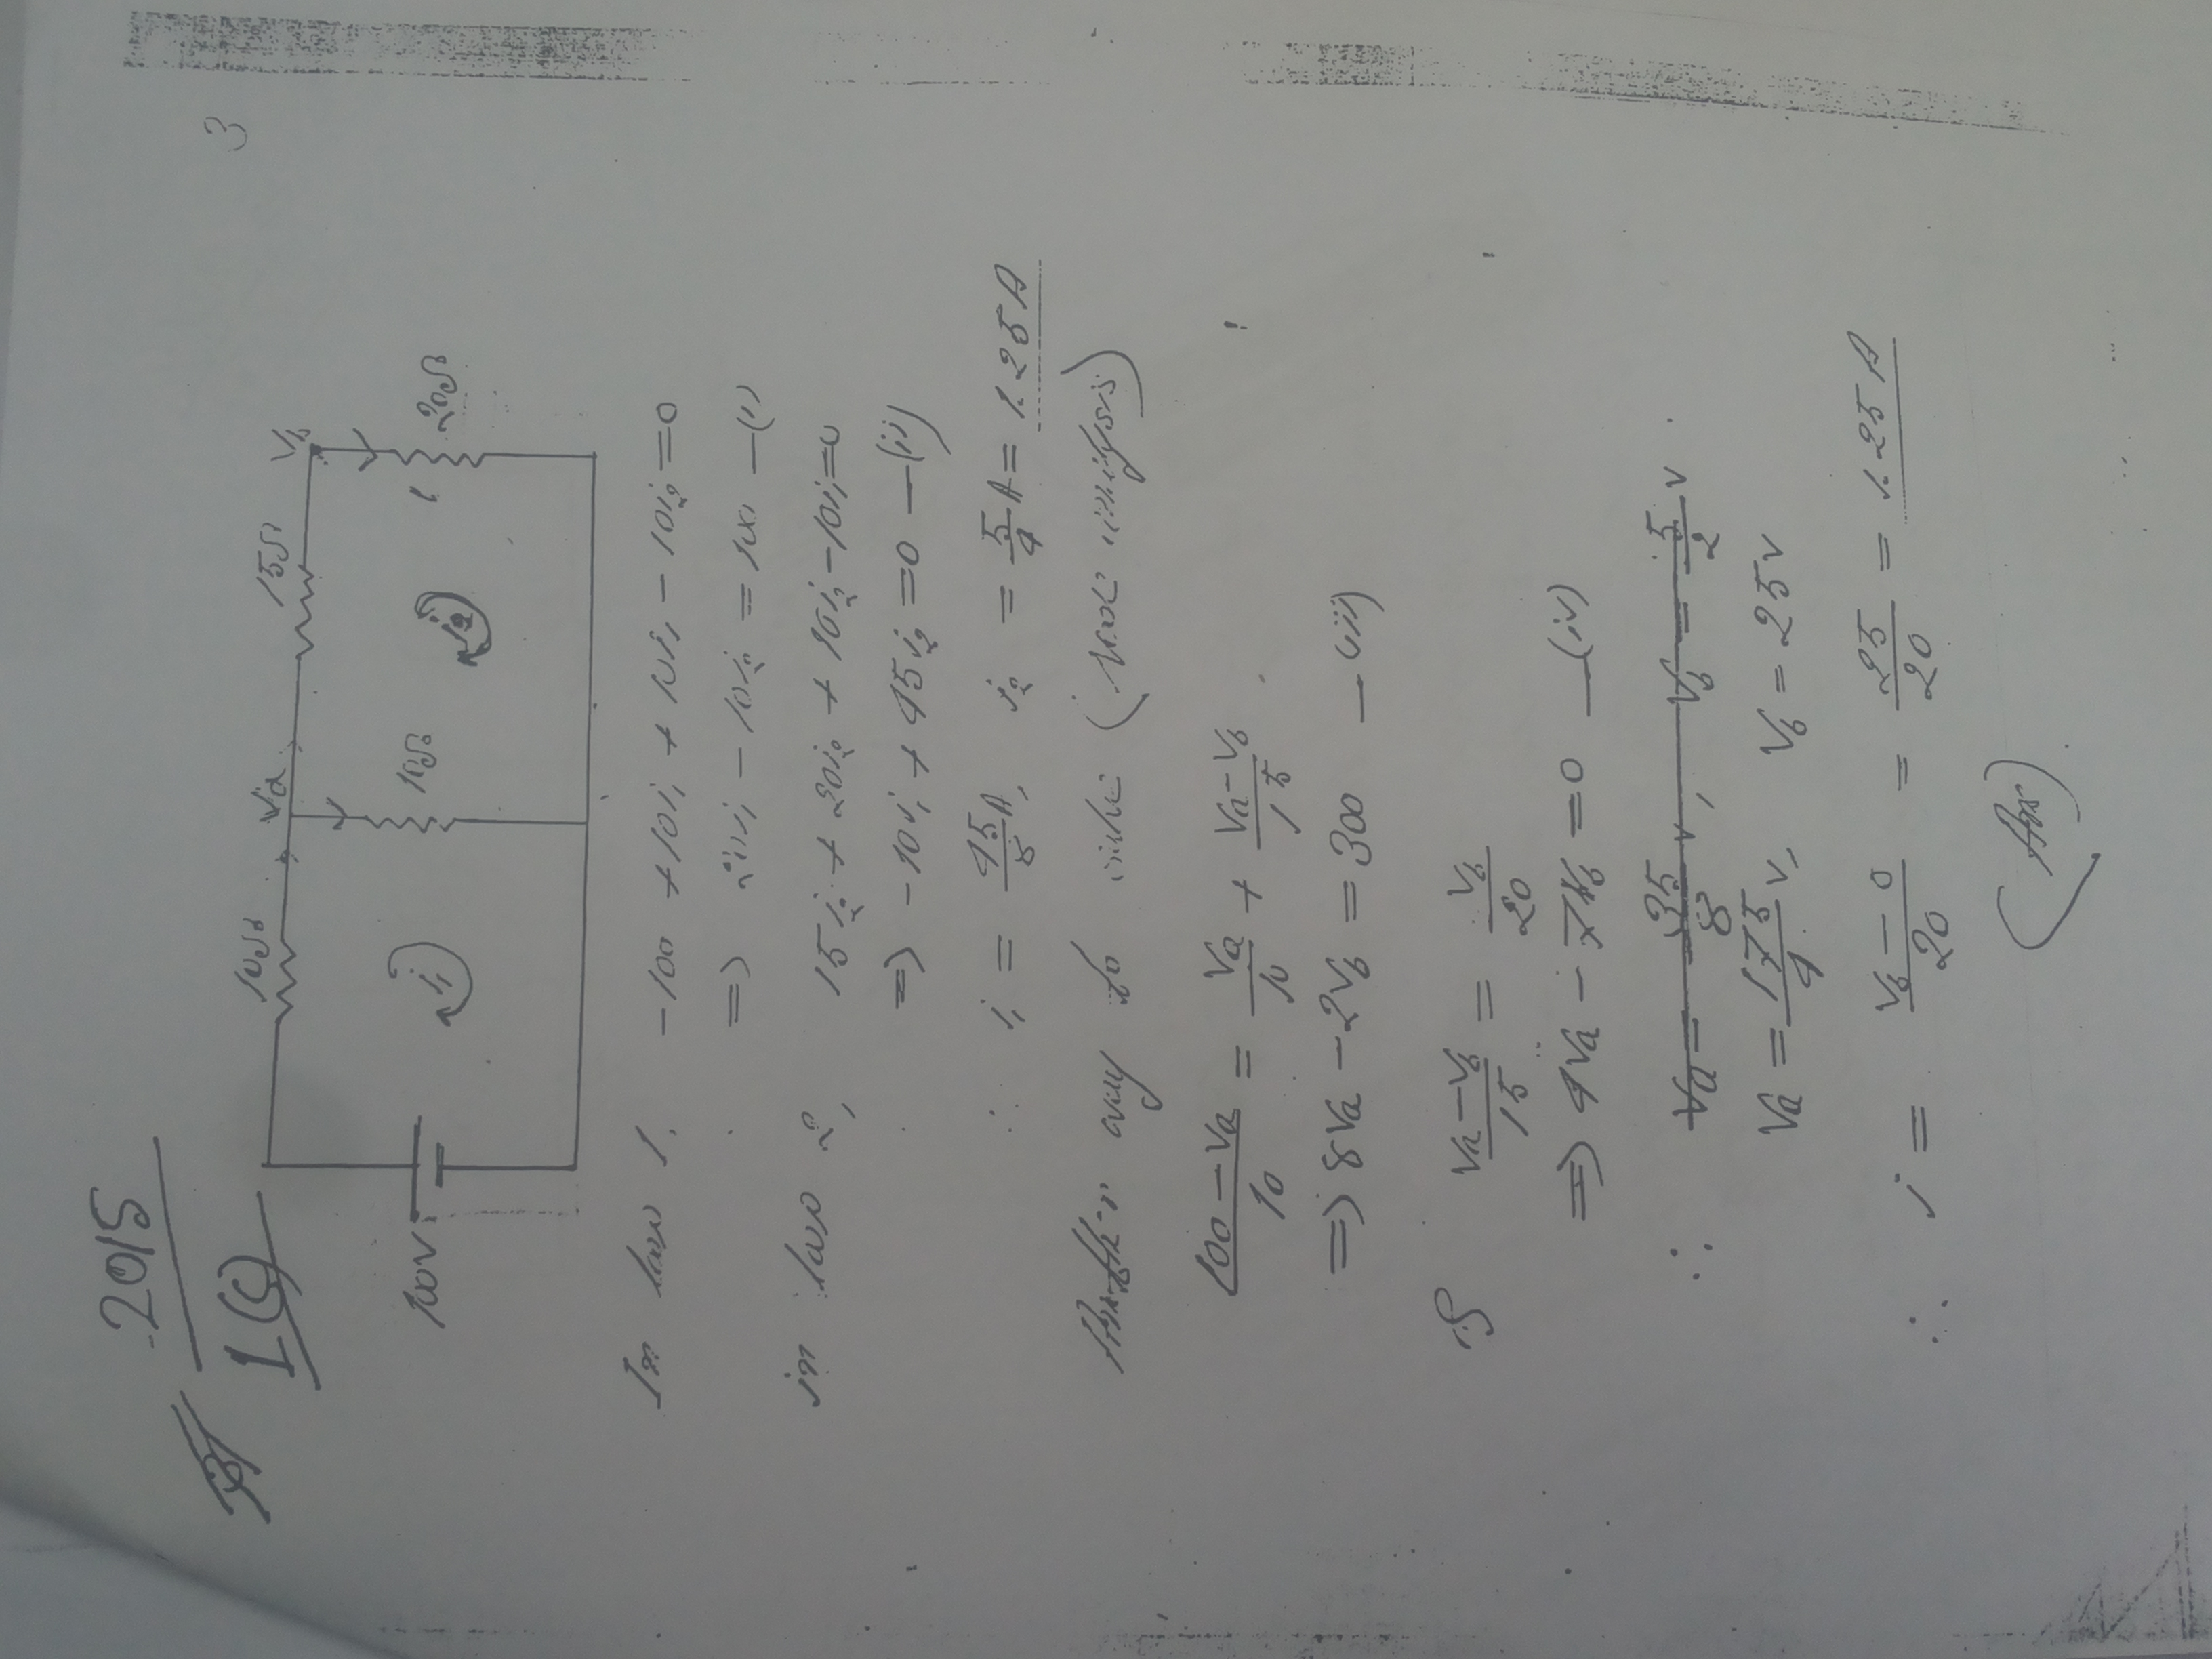 2015
1(c)
3
10Ω Va 15Ω Vb
100V i₁ 10Ω i₂ i 20Ω
In loop 1, -100 + 10i₁ + 10i₁ - 10i₂ = 0
=> 20i₁ - 10i₂ = 100 —(i)
in loop 2, 15i₂ + 20i₂ + 10i₂ - 10i₁ = 0
=> -10i₁ + 45i₂ = 0 —(ii)
∴ i₁ = 45/8 A, i₂ = 5/4 A = 1.25 A
Another way to solve (Node analysis)
(100 - Va)/10 = Va/10 + (Va - Vb)/15
=> 8Va - 2Vb = 300 —(iii)
(Va - Vb)/15 = Vb/20
=> 4Va - 7Vb = 0 —(iv)
∴ Va = 35/8 v, Vb = 5/2 v
Va = 175/4 v, Vb = 25v
∴ i = (Vb - 0)/20 = 25/20 = 1.25 A
(Ans)